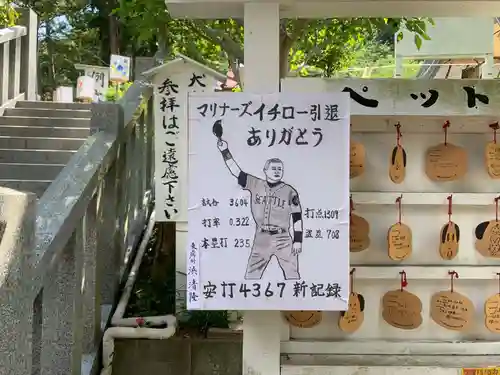 マリナーズイチロー引退
ありがとう
SEATTLE
試合 3604
打率 0.322
本塁打 235
打点 1309
盗塁 708
安打4367新記録
ペット
犬
参拝は遠慮下さ